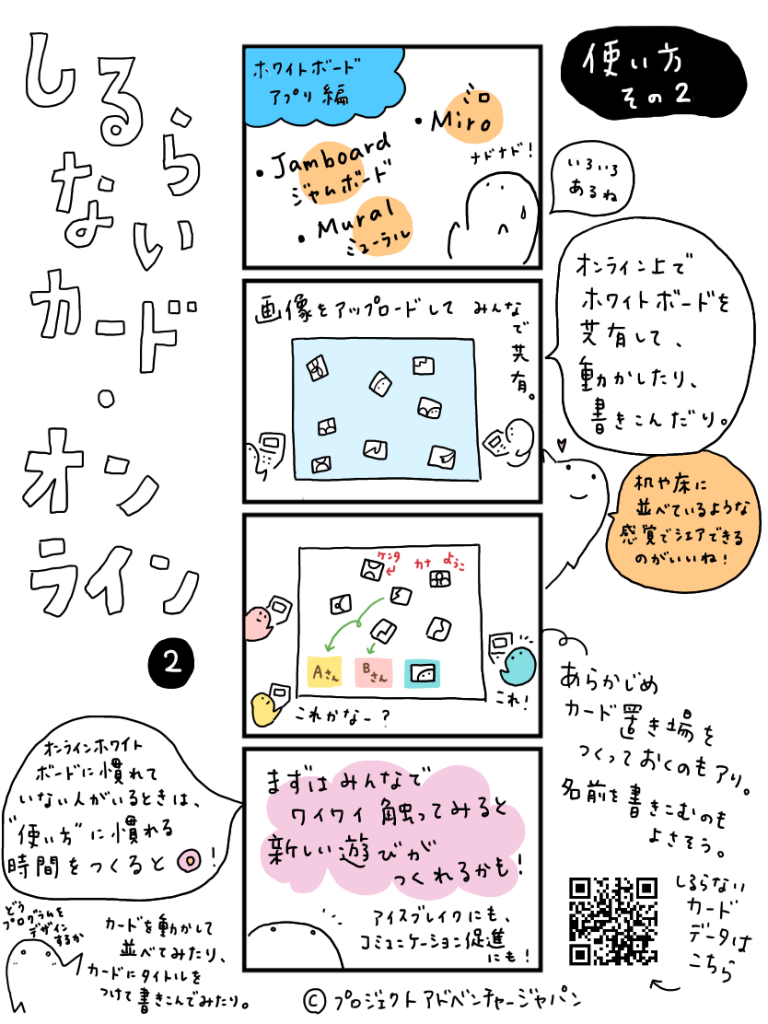 しるら
ない
カード・
オン
ライン
2
使い方
その2
ホワイトボード
アプリ編
ミロ
・Miro
・Jamboard
ジャムボード
・Mural
ミューラル
ナドナド!
いろいろ
あるね
画像をアップロードして みんな
で共有。
オンライン上で
ホワイトボードを
共有して、
動かしたり、
書きこんだり。
机や床に
並べているような
感覚でシェアできる
のがいいね!
ケンタ
カナ
ようこ
Aさん
Bさん
これかなー?
これ!
あらかじめ
カード置き場を
つくっておくのもアリ。
名前を書きこむのも
よさそう。
まずはみんなで
ワイワイ触ってみると
新しい遊びが
つくれるかも!
アイスブレイクにも、
コミュニケーション促進
にも!
オンラインホワイト
ボードに慣れて
いない人がいるときは、
"使い方"に慣れる
時間をつくると◎!
どう
プログラムを
デザイン
するか
カードを動かして
並べてみたり、
カードにタイトルを
つけて書きこんでみたり。
しるらない
カード
データは
こちら
© プロジェクトアドベンチャージャパン